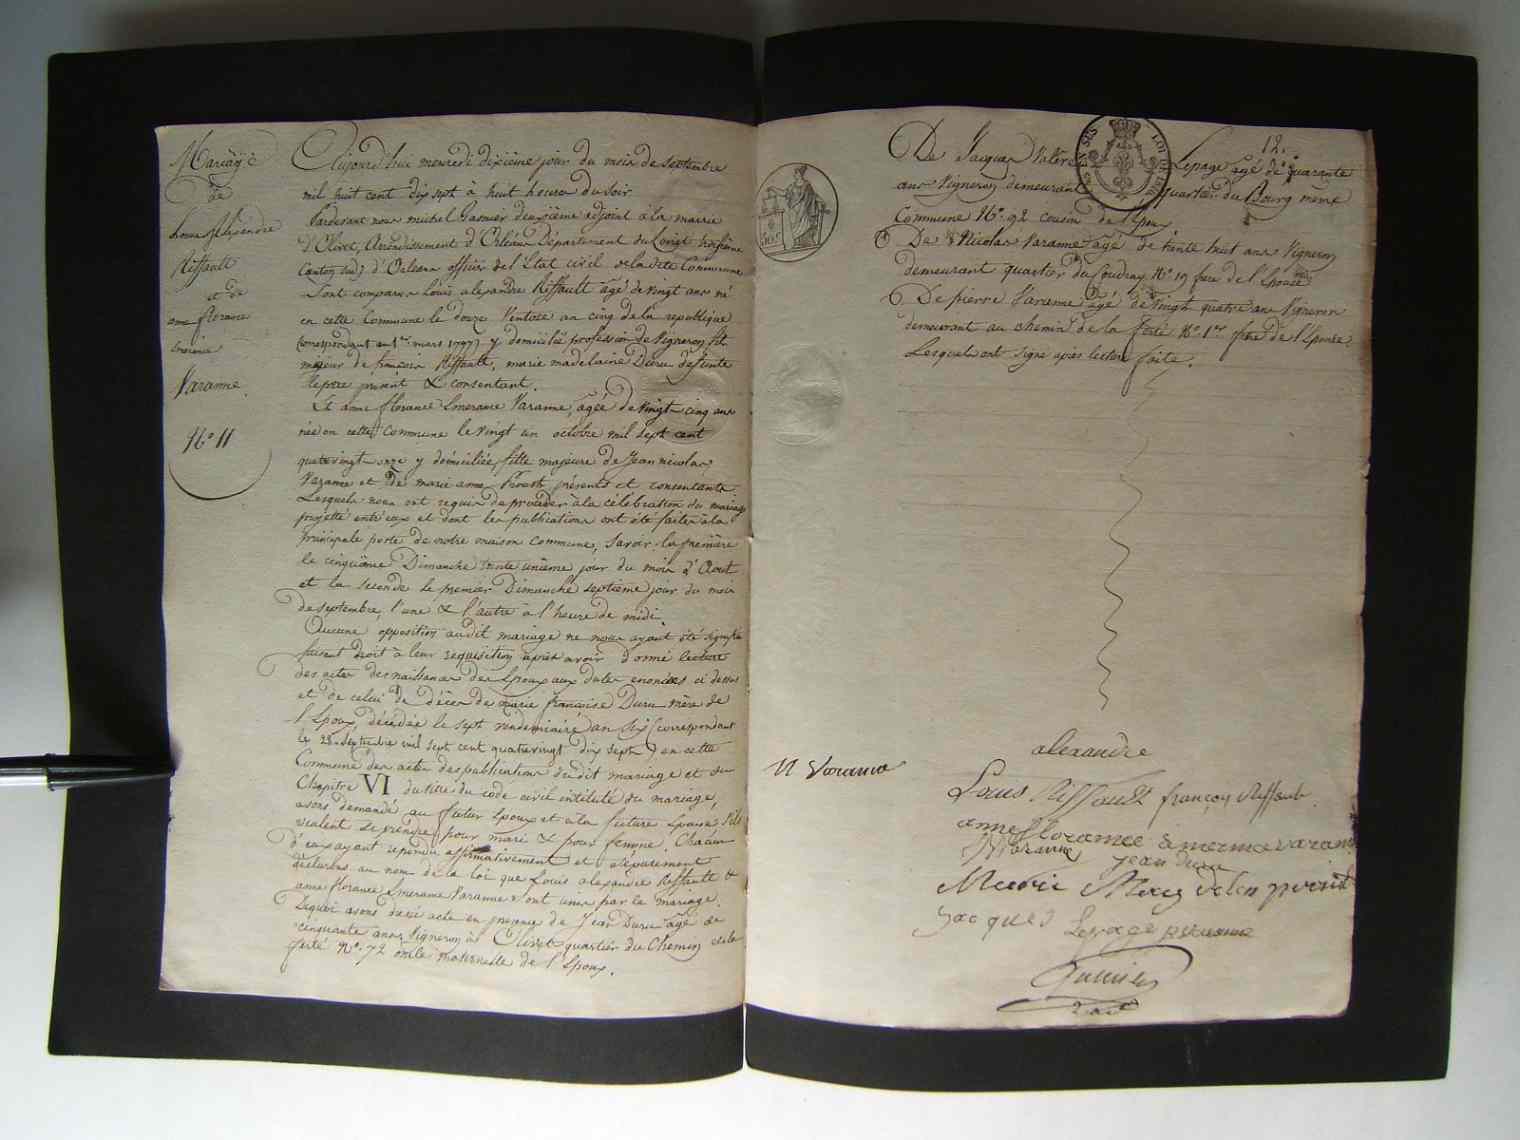 Mariage
de
Louis Alexandre
Riffault
et de
anne florance
Emerance
Varanne.
N.o 11
Aujourd'hui mercredi dixième jour du mois de septembre
mil huit cent dix sept à huit heures du soir
Pardevant nous michel Garnier deuxième adjoint à la mairie
d'Olivet, Arrondissement d'Orléans Département du Loiret troisième
Canton (sud) d'Orléans officier de l'Etat civil de la dite Commune
Sont comparus Louis alexandre Riffault agé de vingt ans né
en cette Commune le douze Ventose an cinq de la republique
(correspondant au mars 1797) y domicilié profession de Vigneron fils
majeur de françois Riffault, marie madelaine Duru defunte
le père present & consentant.
Et anne florance Emerance Varanne, agée de vingt cinq ans
née en cette Commune le vingt un octobre mil sept cent
quatrevingt onze y domiciliée, fille majeure de Jean nicolas
Varanne et de marie anne présents et consentants
Lesquels nous ont requis de procéder à la célébration du mariage
projetté entr'eux et dont les publications ont été faites à la
principale porte de notre maison Commune, Savoir la première
le cinquième Dimanche trente unième jour du mois d'Aout
et la seconde le premier Dimanche septieme jour du mois
de septembre, l'une & l'autre à l'heure de midi.
Aucune opposition audit mariage ne nous ayant été signifiée
faisant droit à leur requisition après avoir donné lecture
des actes des naissances des Epoux aux dates enoncées ci dessus
et de celui de décès de marie françoise Duru mère de
l'Epoux, décédée le sept vendemiaire an Six (correspondant
le 28 Septembre mil sept cent quatrevingt dix sept) en cette
Commune des actes des publications dudit mariage et du
Chapitre VI du titre du code civil intitulé du mariage,
avons demandé au futur Epoux et à la future Epouse s'ils
veulent se prendre pour mari & pour femme. Chacun
d'eux ayant repondu affirmativement et séparement
déclarons au nom de la loi que Louis alexandre Riffault &
anne florance Emerance Varanne sont unis par le mariage.
De quoi avons dressé acte en presence de Jean Duru agé de
cinquante ans Vigneron à Olivet quartier du Chemin de la
ferté N.o 72 oncle maternelle de l'Epoux.
12.
De Jacques Valère Lepage agé de quarante
ans Vigneron demeurant quartier du Bourg même
Commune N.o 92 cousin de l'Epoux
De Nicolas Varanne agé de trente huit ans Vigneron
demeurant quartier du Coudray N.o 19 frere de l'Epouse
De pierre Varanne agé de vingt quatre ans Vigneron
demeurant au chemin de la ferté N.o 1er frère de l'Epouse
Lesquels ont signé après lecture faite.
alexandre
N Varanne
Louis Riffault françois Riffault
anne florance Emerance varanne
Varanne jean duru
Marie
jacques Lepage pvaranne
Garnier